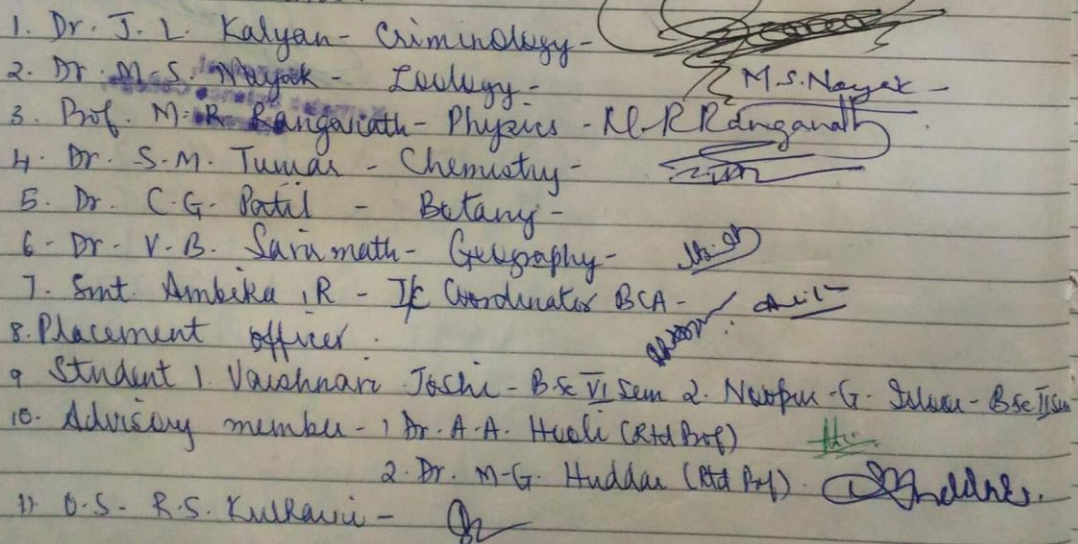 1. Dr. J. L. Kalyan - Criminology -
2. Dr. M. S. Nayak - Zoology - M.S. Nayak -
3. Prof. M. R Ranganath - Physics - M. R Ranganath
4. Dr. S. M. Tuwar - Chemistry -
5. Dr. C. G. Patil - Botany -
6. Dr. V. B. Savamath - Geography -
7. Smt Ambika .R - I/c Coordinator BCA -
8. Placement officer.
9 Student 1. Vaishnavi Joshi - B.Sc VI Sem 2. G. - B.Sc II Sem
10. Advisory member - 1 Dr. A. A. Hooli (Rtd Prof)
2. Dr. M-G. Huddar (Rtd Prof).
11. O.S - R.S. Kulkarni -